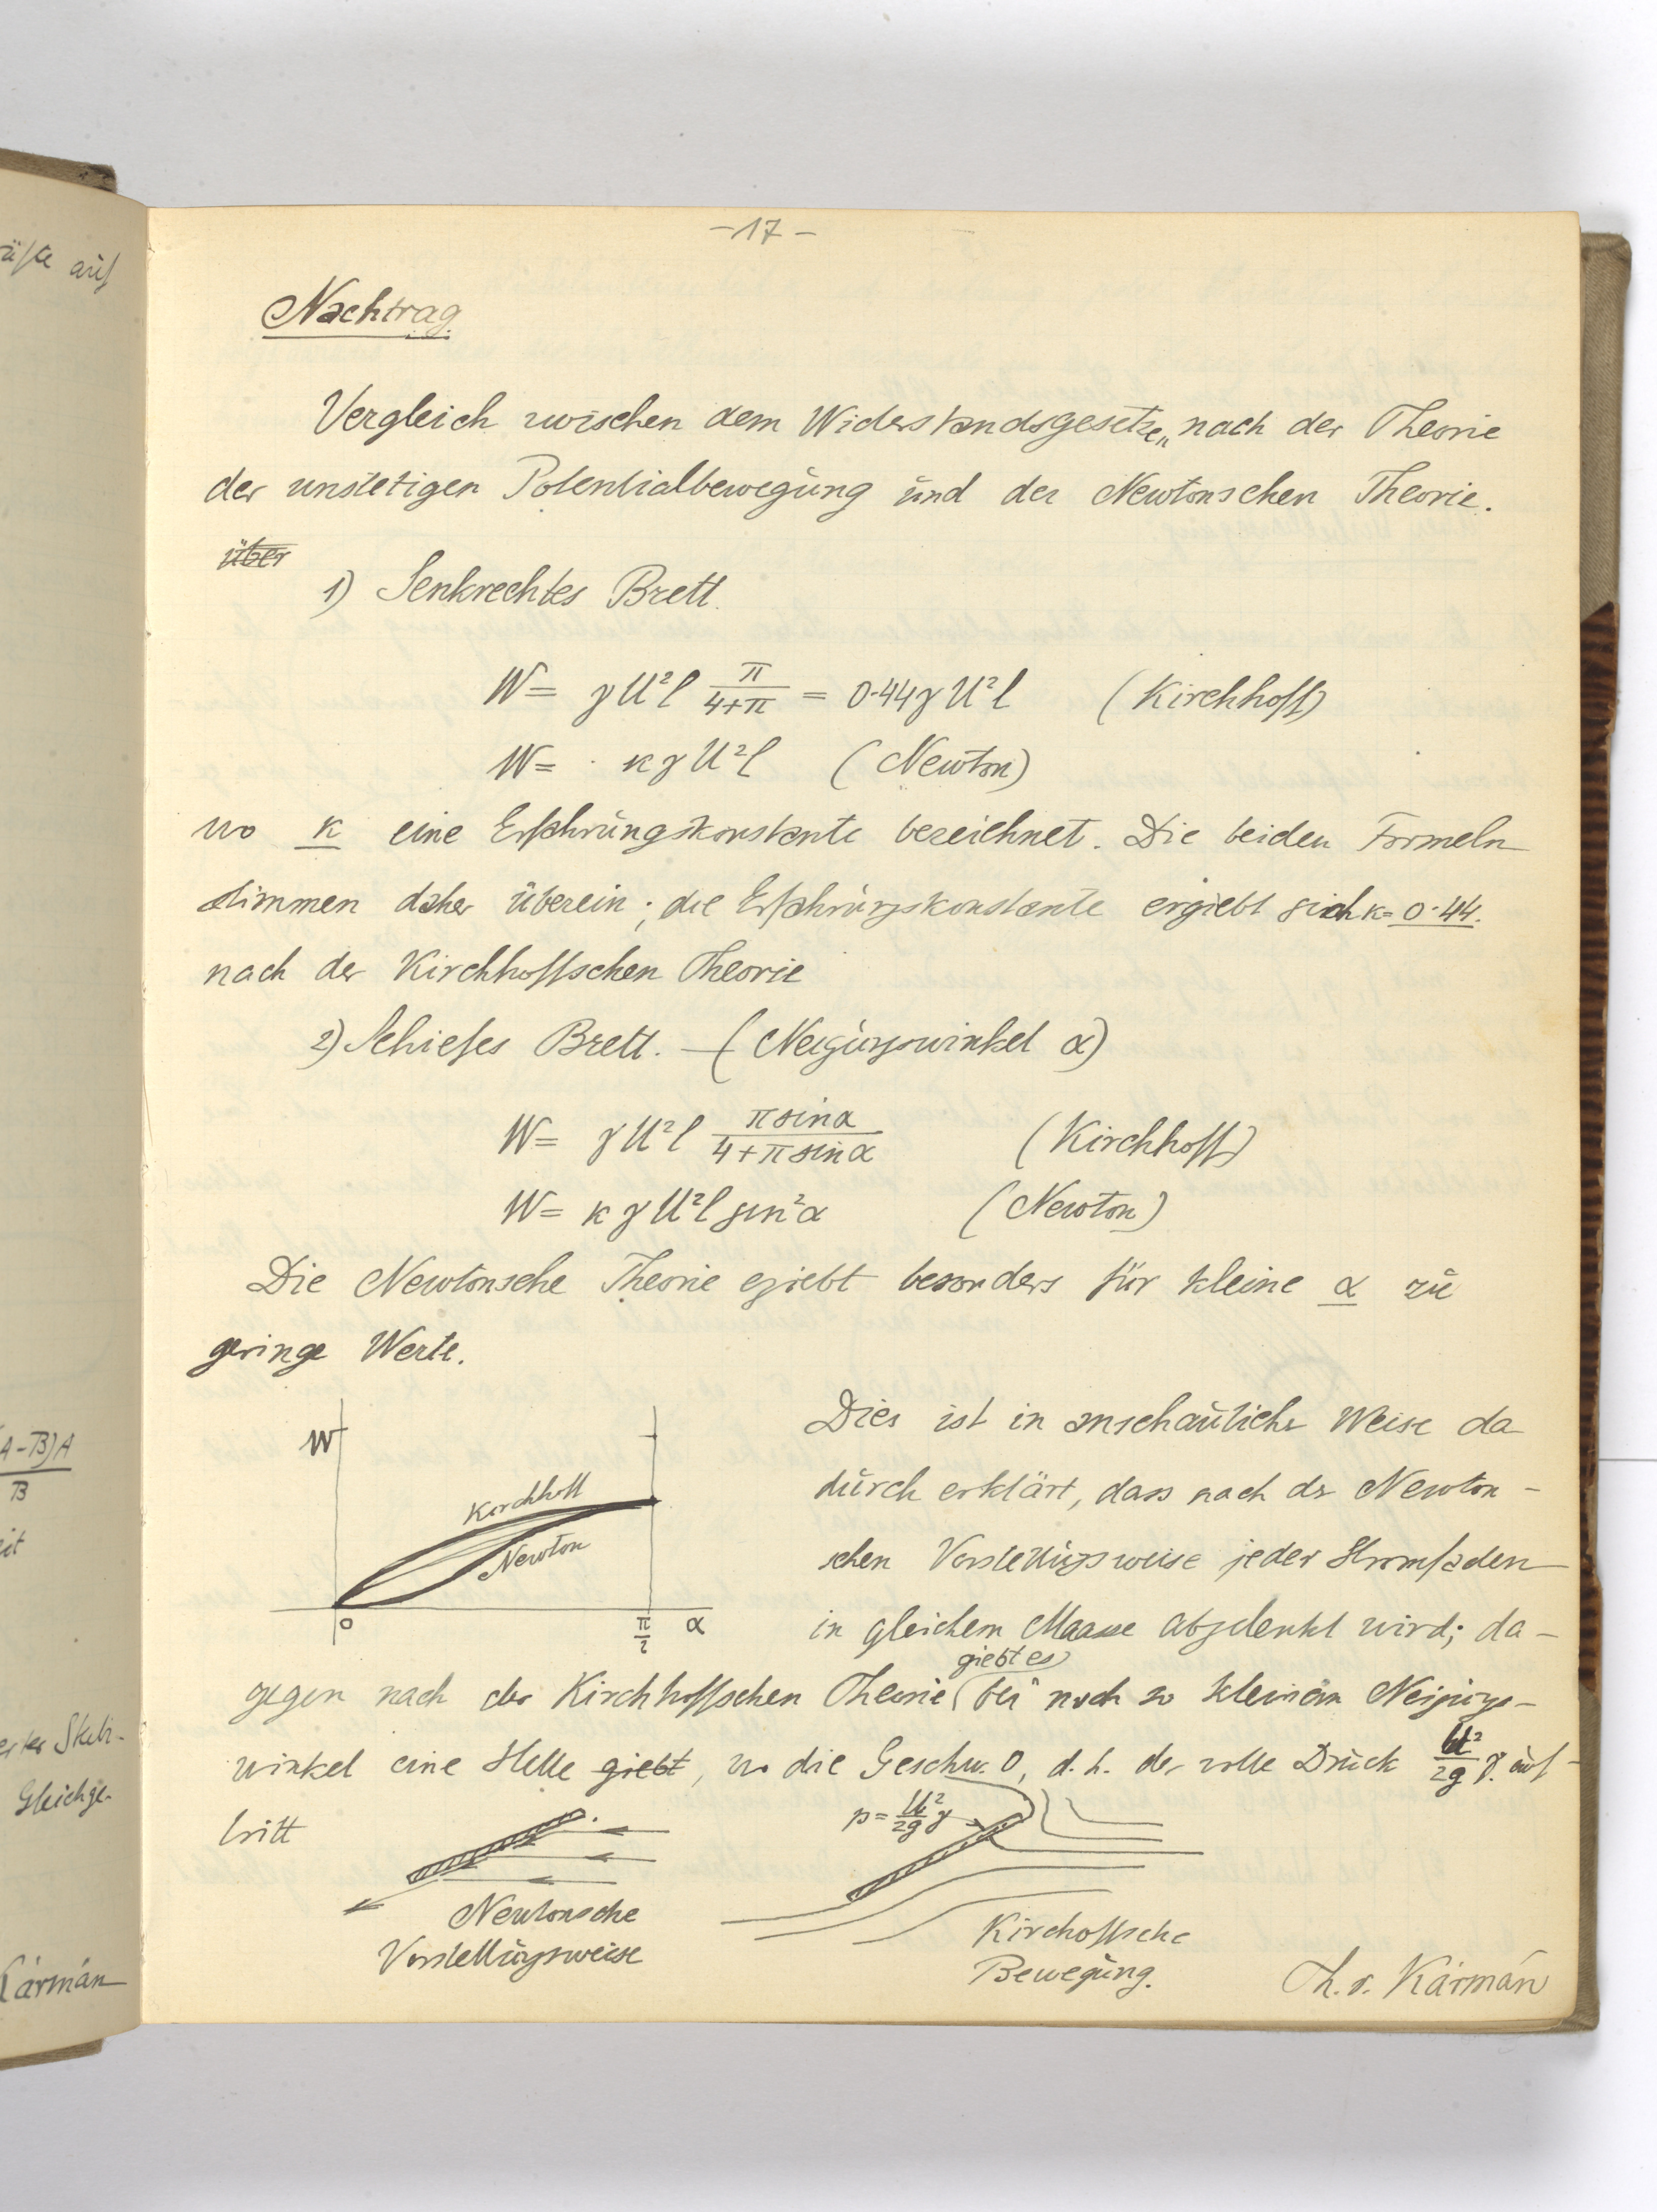 -17-
Nachtrag
Vergleich zwischen dem Widerstandsgesetzen nach der Theorie
der unstetigen Potentialbewegung und der Newtonschen Theorie.
über
1) Senkrechtes Brett.
W = γU²l π/(4+π) = 0·44γU²l (Kirchhoff)
W = κγU²l (Newton)
wo κ eine Erfahrungskonstante bezeichnet. Die beiden Formeln
stimmen daher überein; die Erfahrungskonstante ergiebt sich κ= 0·44.
nach der Kirchhoffschen Theorie
2) Schiefes Brett. — (Neigungswinkel α)
W = γU²l π sinα/(4+π sinα) (Kirchhoff)
W = κγU²l sin²α (Newton)
Die Newtonsche Theorie ergiebt besonders für kleine α zu
geringe Werte.
Dies ist in anschaulicher Weise da
durch erklärt, dass nach der Newton-
schen Vorstellungsweise jeder Stromfaden
in gleichem Maasse abgelenkt wird; da-
W
Kirchhoff
Newton
0 π/2 α
giebt es
gegen nach der Kirchhoffschen Theorie bei noch so kleinem Neigungs-
winkel eine Stelle giebt, wo die Geschw. 0, d.h. der volle Druck U²/2g γ. auf-
tritt
p = U²/2g γ
Newtonsche
Vorstellungsweise
Kirchoffsche
Bewegung.
Th. v. Kármán
üfte auf
(A-B)A
B
eit
Skeli-
Gleichge-
Kármán